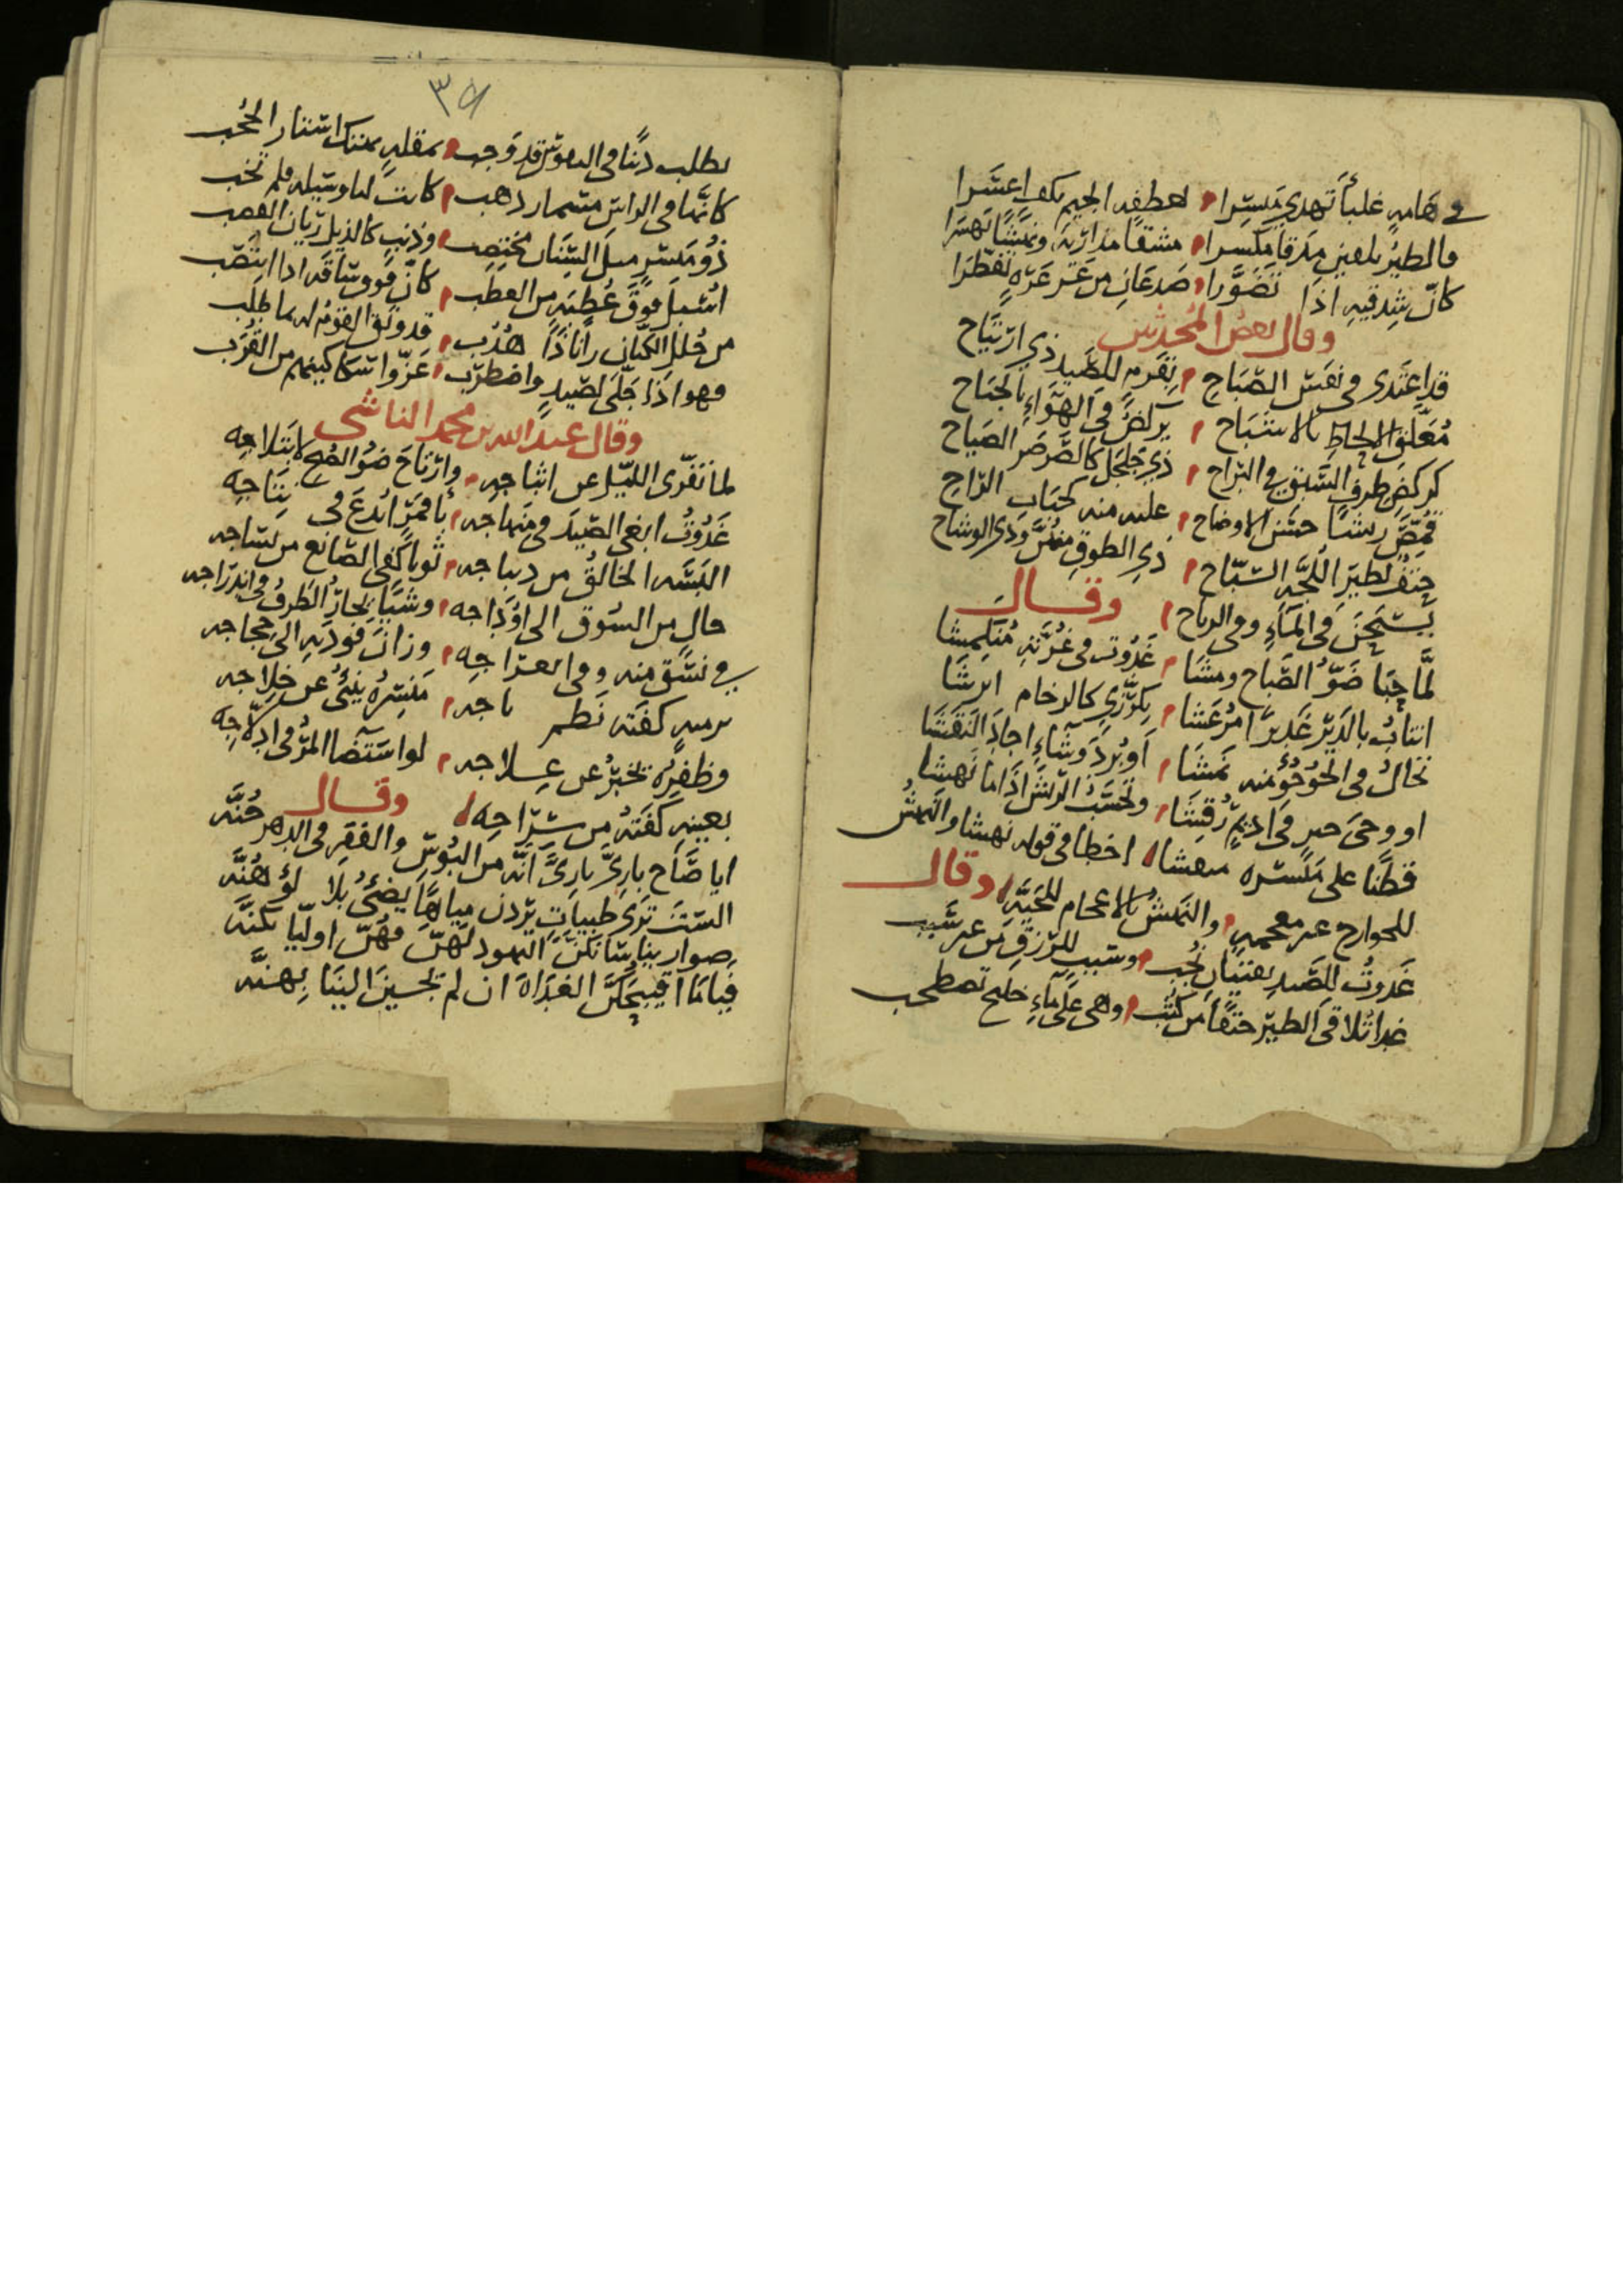 في هَامةٍ غلباَ تهدي مَنسِرا لعطفه الجيم بكف اعسَرا
فالطيرُ يلقين مدقا مكسرا مشقا مداريه ونهشًا نهسَرا
كانّ شِدقيهِ اذا تضوّرا صدغان من عَرّةٍ تفطّرا
وقال بعض المُحدثين
قد اغتدى في نفسِ الصّبَاحِ بقرمٍ للصَّيد ذي ارتياح
مُعلّق الالحاظِ بالاشباحِ يركضُ في الهوَاءِ بالجنَاح
كركضِ طرفِ السَّبقِ في البَراح ذي جلجل كالصَّرصَرِ الصّياح
قمّصَ ريشًا حسَن الاوضاح عليه منه كحبَاب الرّاح
حتفٌ لطير اللُّجَّه السّبّاح ذي الطوق منهنّ وذي الوشاح
يسبَحنَ في الماءِ وفي الرياح
وقال
لمَّا حبَا ضَوُّ الصّباح ومشَا غدوت في غرّتهِ مُنكمشا
انتابُ بالدّيرِ غديرًا مُرعشا بكرّزيٍ كالرخام ابرشَا
تخالُ في الجُوجُؤ منه نمشَا اوبُردَ وشّاءٍ اجادَ النقشَا
او وحي حبر في اديمٍ رُقشَا وتحسَبُ الريشَ اذا ما نهشا
قطنًا على منسره منفشا اخطا في قوله نهشا والنهشُ
للجوارح غير معجمهٍ والنهشُ بالاعجام للحيَّةِ وقال
غدوتُ للصَّيد بفتيانٍ نُجُب وسببٍ للرّزقِ من غير سَبب
غدا تلاقى الطيرُ حتفًا من كثب وهي على ماءِ خليج تصطخب
٣٩
يطلب دَينًا في النفوس قد وَجب بمقلةٍ تهتك استار الحُجُب
كانّها في الراسِ مسمار ذهب كانت لنا وسيله فلم تخب
ذُو مَنسَرٍ مثل السّنان مختضب وذنبٍ كالذيل ريّان القصب
اسْبل فوقَ عُطبةٍ من العطب كانّ فوق ساقه اذا انتصَب
من حُلل الكتّان رانًا ذا هُدُب قد وثق القوم له بما طلب
فهو اذا جلّى لصَيدٍ واضطرب عَرّوا سكاكينهم من القُرب
وقال عبد الله بن محمد الناشي
لما تفرّى الليل عن اثباجهِ وارتاحَ ضؤ الصُّبح لابتلاجه
غدوتُ ابغي الصّيدَ في منهاجه باقمرٍ ابدع في نتاجه
البسَه الخالقُ من ديباجه ثوبا كفى الصّانع من نسّاجه
حالٍ من السّوق الى اوْداجه وشيًا يحارُ الطرفُ في اندراجه
في نسَقٍ منه وفي انعراجه وزان فوديه الى حجاجه
بزينهٍ كفته نظم تاجه منسِرُه يُنبئُ عن خلاجه
وظفره تخبرُ عن علاجه لو استضا المرُّ في ادلاجه
بعينهِ كفته من سِرَاجه
وقال
ايا صَاح بازيَّ بازيَّ انّه من البُوسِ والفقرِ في الدهر جُنّه
السْتَ ترى ظبيات يردن مياهًا يضئُ بلا لؤ هُنّه
فيا ما اقيبَحكنَّ الغداة ان لم تجسين الينا بهنّه